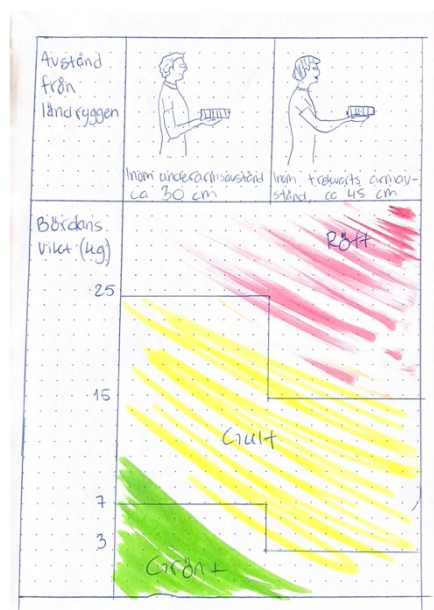 Avstånd
från
ländryggen
Inom underarmsavstånd
ca 30 cm
Inom trekvarts armav-
stånd, ca 45 cm
Bördans
vikt (kg)
Rött
25
15
Gult
7
3
Grönt